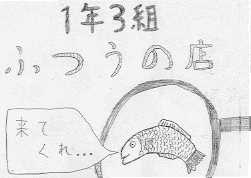 1年3組
ふつうの店
来て
くれ...